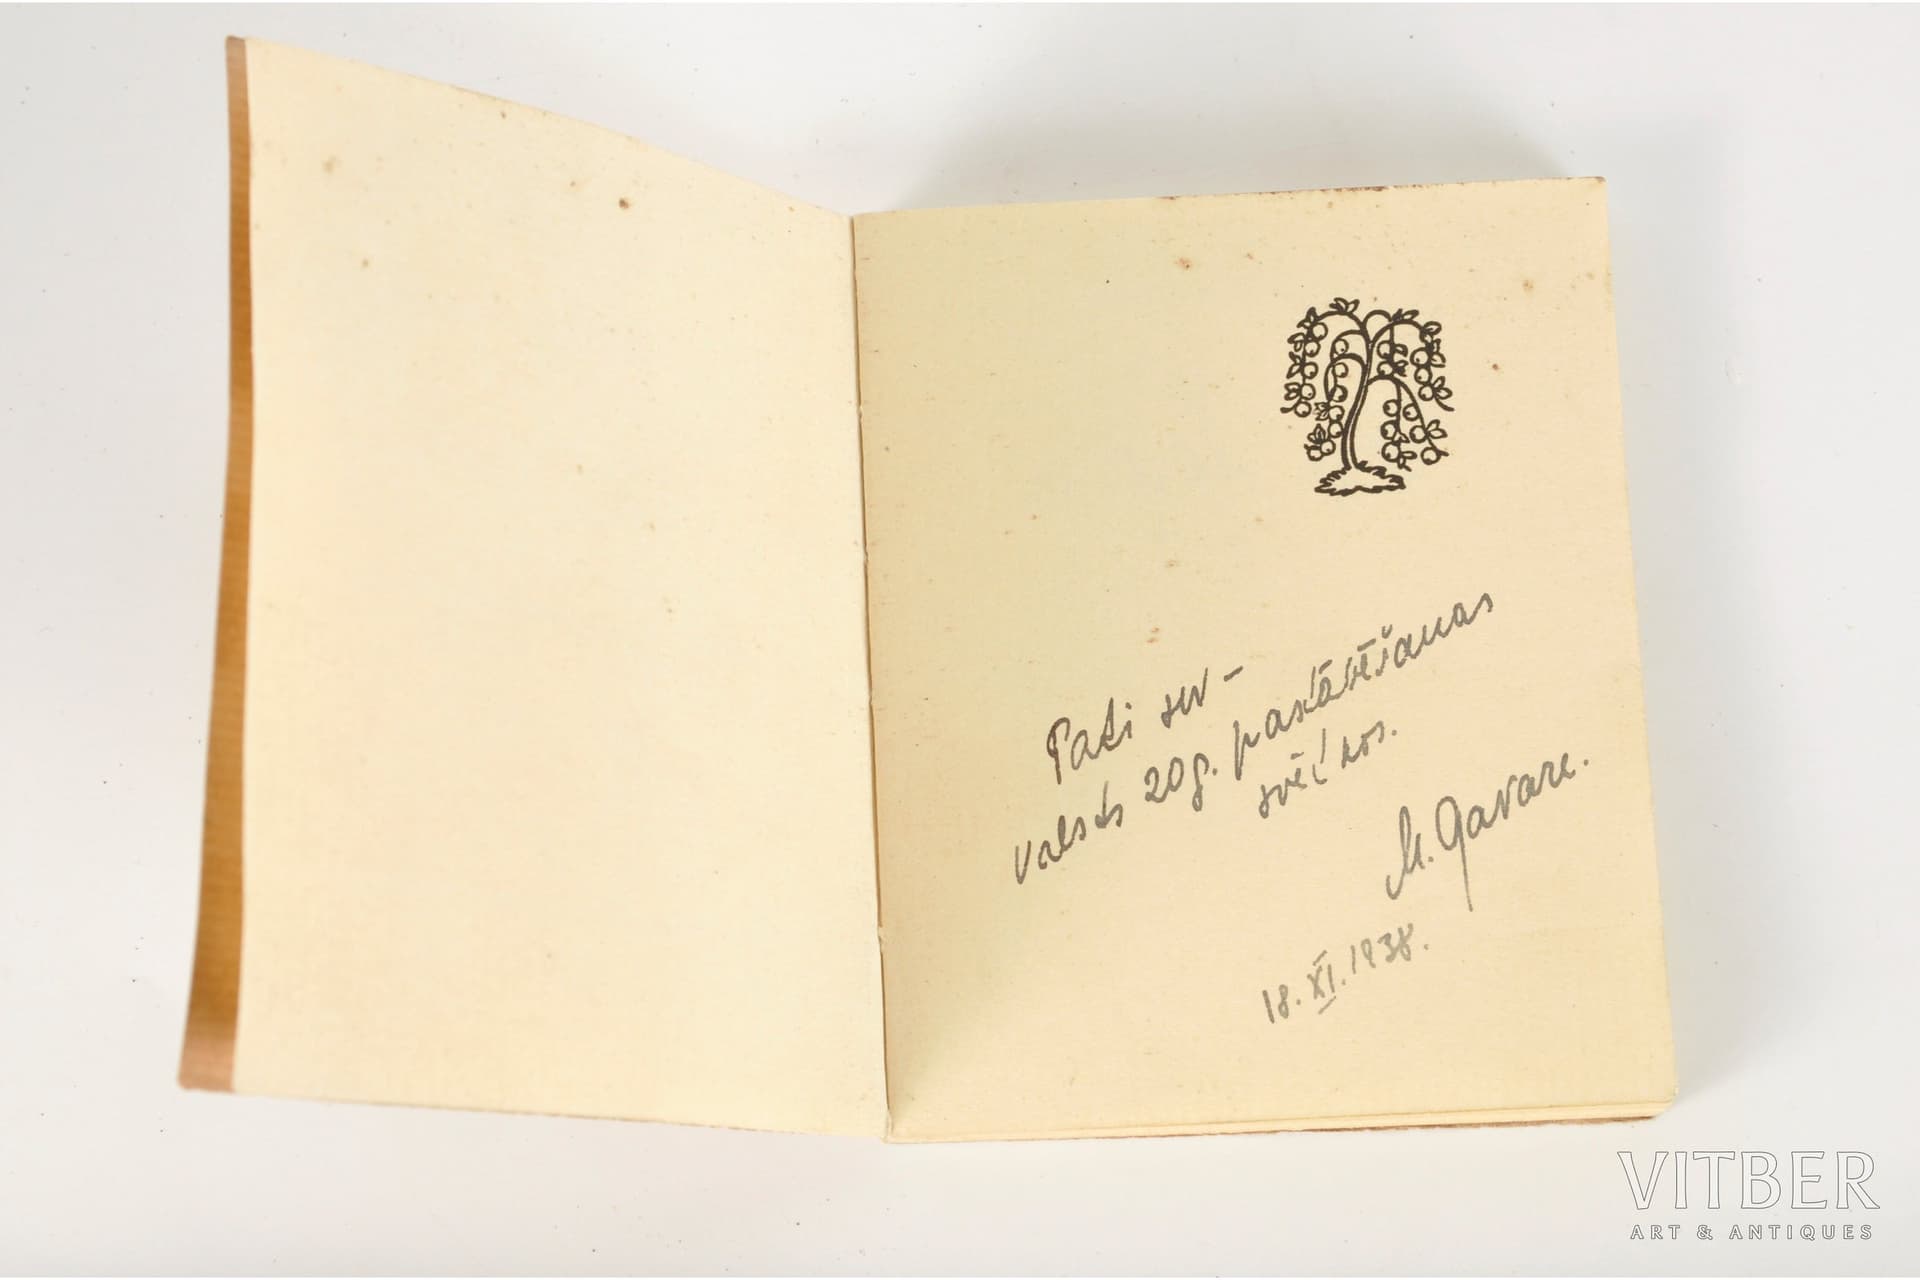 Pati sev –
valsts 20g. pastāvēšanas
svētkos.
M. Gavare.
18. XI. 1938.
VITBER
ART & ANTIQUES